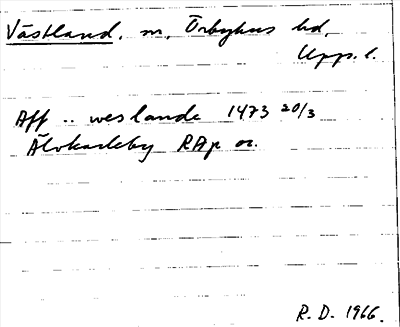 Västland, sn, Örbyhus hd,
Upps. l.
Aff .. weslande 1473 20/3
Älvkarleby RAp or.
R. D. 1966.